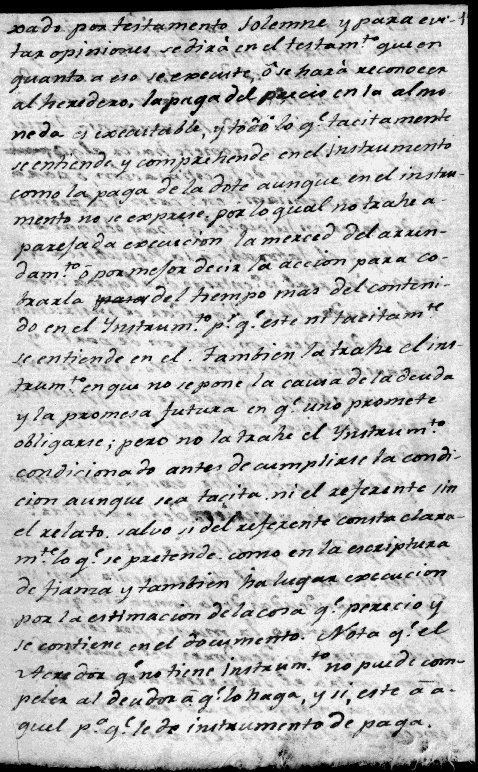 xado por testamento solemne y para evi-
tar opiniones se dirà en el testam.to que en
quanto a eso se execute, ô se harà reconocer
al heredero. la paga del precio en la almo-
neda es executable, y todo lo q.e tacitamente
se entiende y comprehende en el Instrumento
como la paga de la dote aunque en el instru-
mento no se exprese. por lo qual no trahe a-
parejada execucion la merced del arrin-
dam.to ô por mejor decir la accion para co-
brarla del tiempo mas del conteni-
do en el Ynstrum.to p.r q.e este ni tacitam.te
se entiende en el. Tambien la trahe el ins-
trum.to en que no se pone la causa de la deuda
y la promesa futura en q.e uno promete
obligarse; pero no la trahe el Ynstrum.to
condicionado antes de cumplirse la condi-
cion aunque sea tacita. ni el referente sin
el relato. salvo si del referente consta clara-
m.te lo q.e se pretende. como en la escriptura
de fianza y tambien ha lugar execucion
por la estimacion de la cosa q.e perecio y
se contiene en el documento. Nota q.e el
Acredor q.e no tiene Instrum.to no puede com-
peler al deudor â q.e lo haga, y si, este â a-
quel p.a q.e le de instrumento de paga.